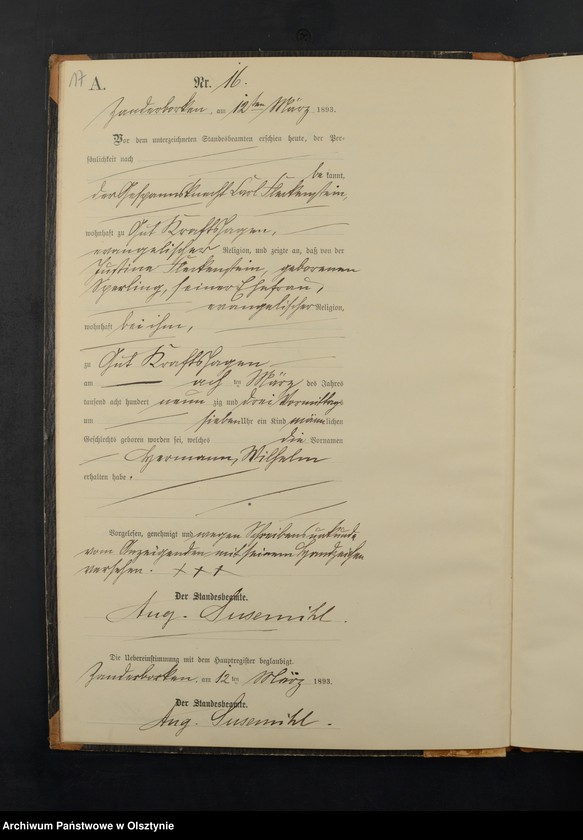 17
A.
Nr. 16.
Zanderborken, am 12ten März 1893.
Vor dem unterzeichneten Standesbeamten erschien heute, der Per-
sönlichkeit nach
be kannt,
der Gespannknecht Carl Fleckenstein,
wohnhaft zu Gut Kraftshagen,
evangelischer Religion, und zeigte an, daß von der
Justina Fleckenstein, geborenen
Sperling, seiner Ehefrau,
evangelischer Religion,
wohnhaft bei ihm,
zu Gut Kraftshagen
am acht ten März des Jahres
tausend acht hundert neun zig und drei Vormittags
um sieben Uhr ein Kind männlichen
Geschlechts geboren worden sei, welches die Vornamen
Hermann, Wilhelm
erhalten habe.
Vorgelesen, genehmigt und wegen Schreibensunkunde
vom Anzeigenden mit seinem Handzeichen
versehen. + + +
Der Standesbeamte.
Aug. Susemihl.
Die Uebereinstimmung mit dem Hauptregister beglaubigt.
Zanderborken, am 12 ten März 1893.
Der Standesbeamte.
Aug. Susemihl.
Archiwum Państwowe w Olsztynie